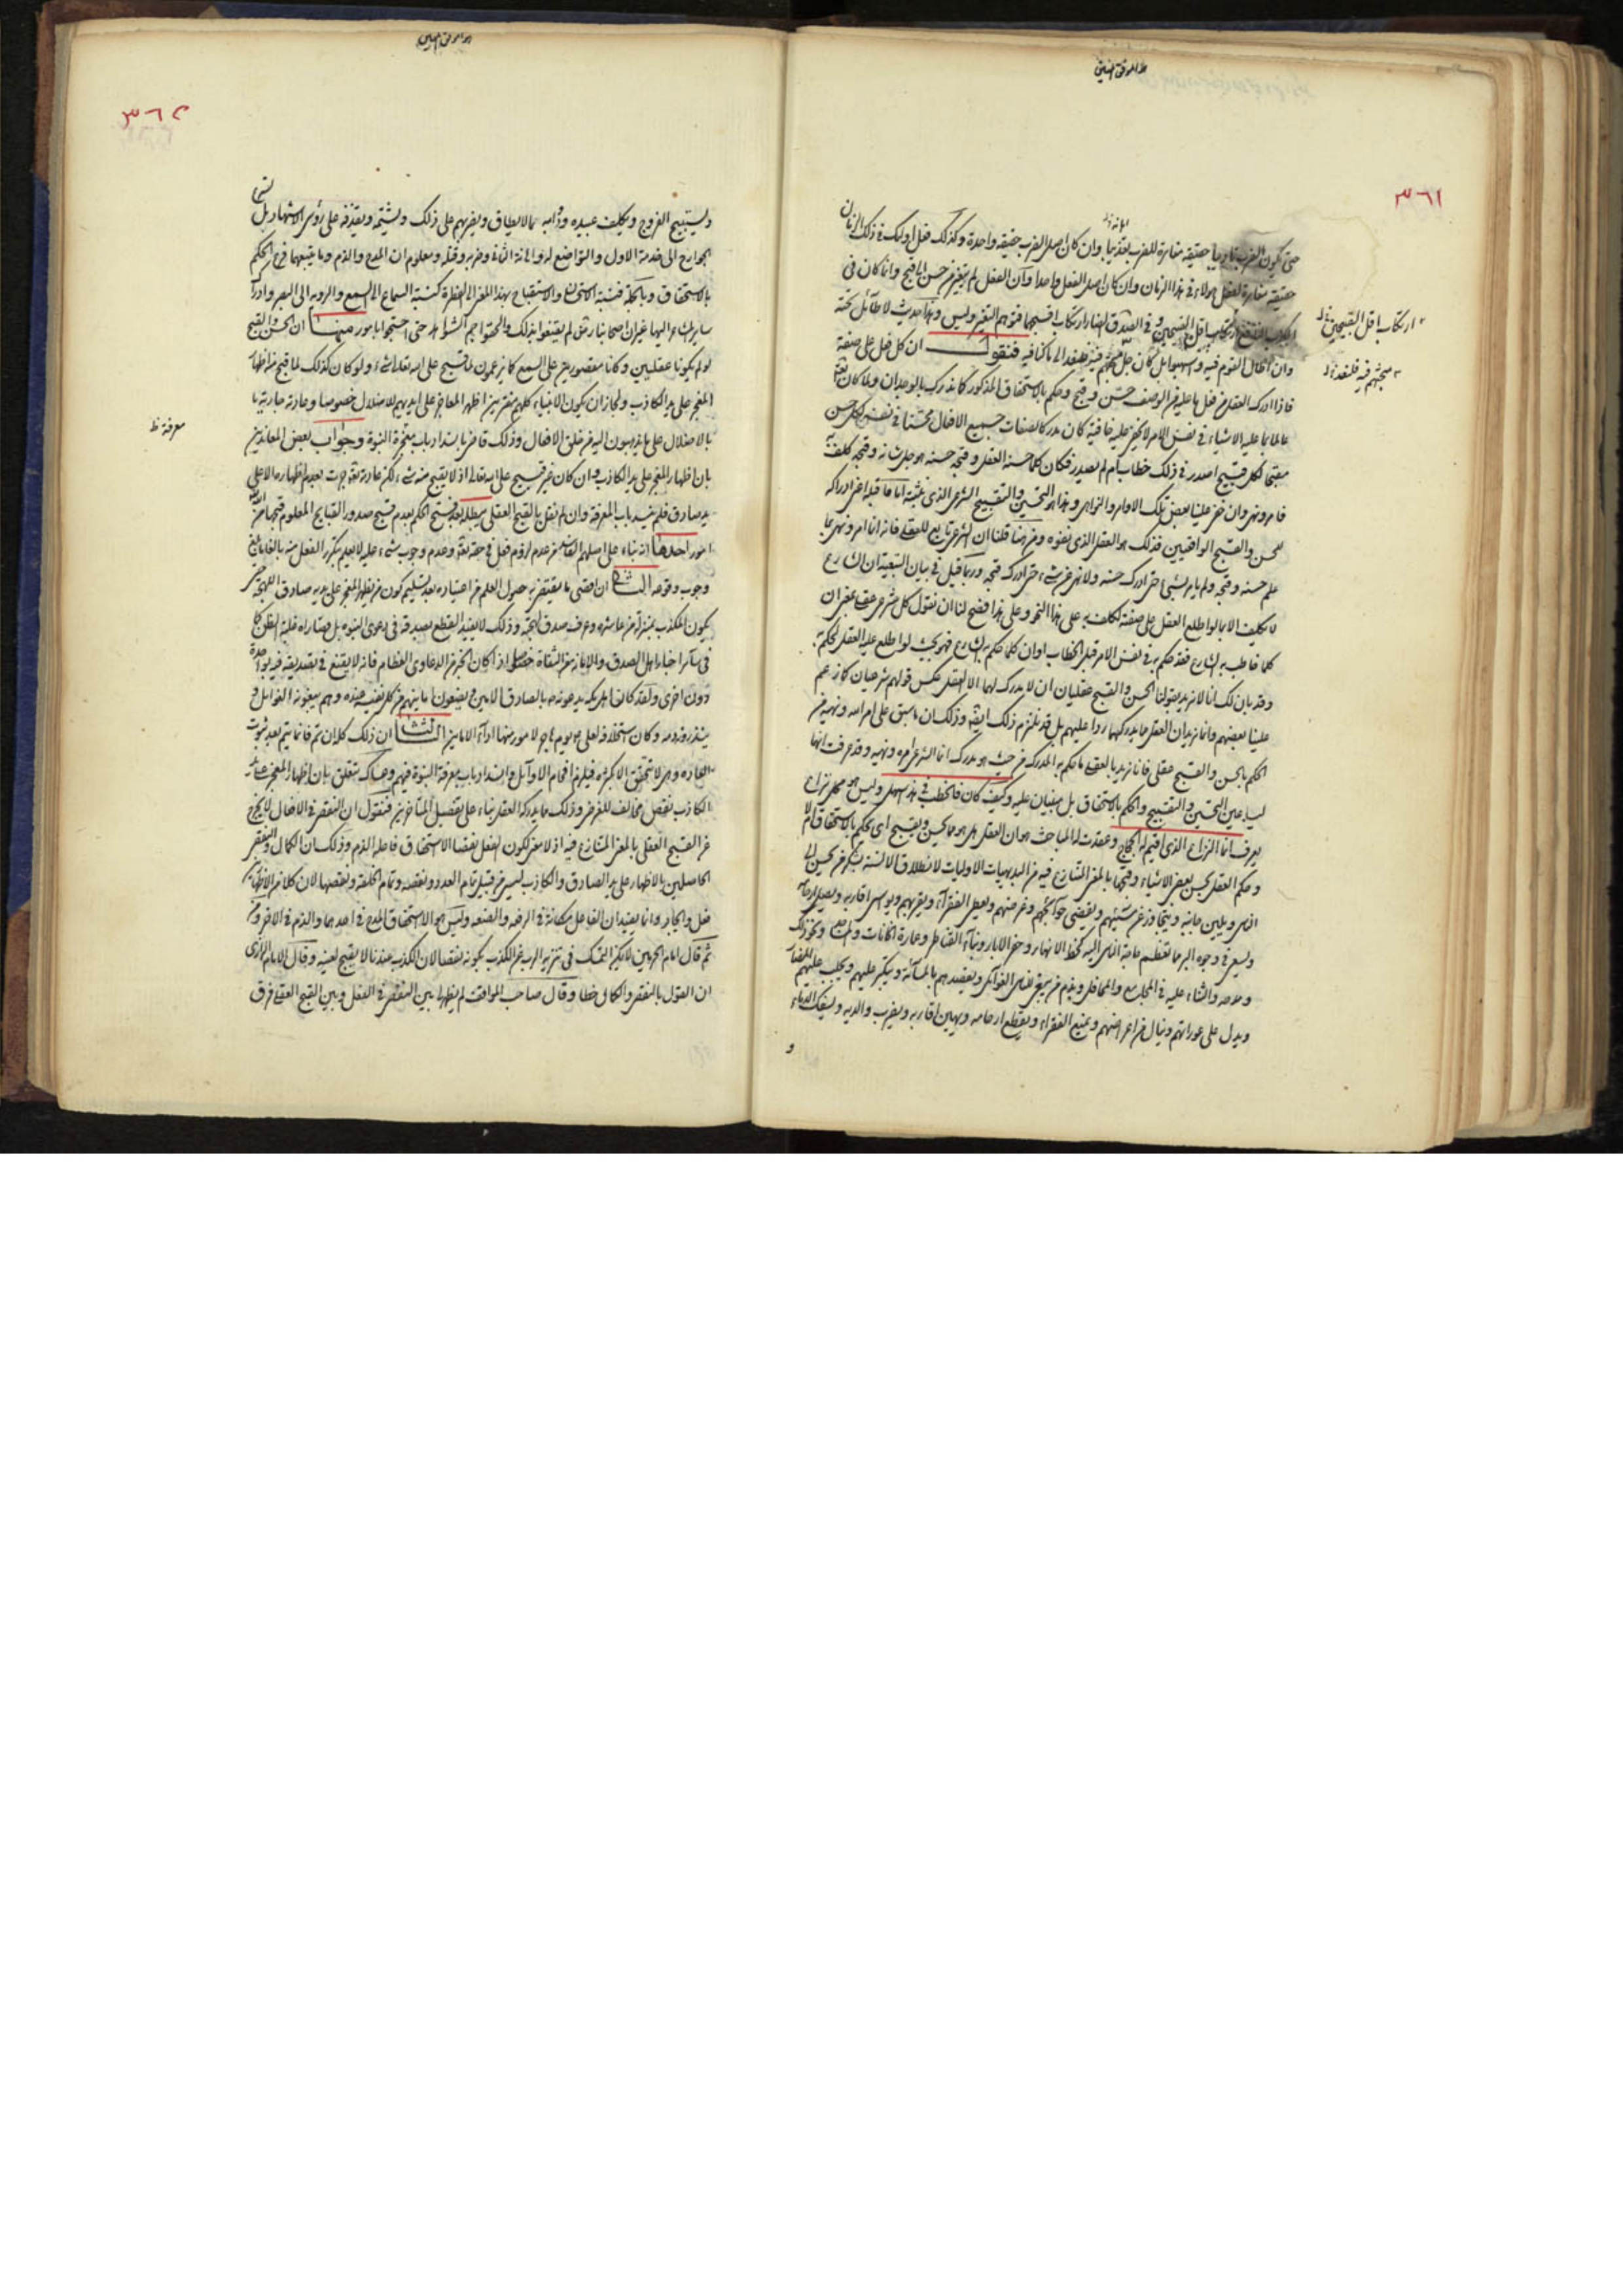 ٣٦١
حتى يكون الضرب تاديبا حقيقة مغايرة للضرب تعذيبا وان كان اصل الضرب حقيقة واحدة وكذلك فعل اولئك في ذلك الزمان
حقيقة مغايرة لفعل هؤلاء في هذا الزمان وان كان اصل الفعل واحدا وان العقل لم يتغير من حسن الى قبح وانما كان في
ارتكاب اقل القبيحين
وفي الصدق الضار ارتكاب اقبحهما فتوهم التغير وليس وهذا حديث لا طائل تحته
وان اطال القوم فيه واسهبوا بل كان جل فيه فنقول ان كل فعل على صفة
فاذا ادرك العقل من فعل ما عليه من الوصف حسن وقبح وحكم بالاستحقاق المذكور كما ندرك بالوجدان ولما كان تعالى
عالما بما عليه الاشياء في نفس الامر لا يخفى عليه خافية كان مدركا لصفات جميع الافعال محسنا في نفسه لكل حسن
مقبحا لكل قبيح اصدر في ذلك خطاب ام لم يصدر فكان كلما حسنه العقل وقبحه حسنه هو جل شانه وقبحه
فامر ونهى وان خفى علينا بعض تلك الاوامر والنواهي وهذا هو التحسين والتقبيح الشرعى الذي نثبته اما ما قبله اعنى ادراكه
للحسن والقبح الواقعيين فذلك هو العقل الذي نفوه ومن هنا قلنا ان الشرعى تابع للعقلى فانه انما امر ونهى بما
علم حسنه وقبحه ولم يامر بشيء حتى ادرك حسنه ولا نهى عن شيء حتى ادرك قبحه وربما قيل في بيان التبعية ان الشارع
لا يكلف الا بما لو اطلع العقل على صفته لكلف به على هذا النحو وعلى هذا فصح لنا ان نقول كل شرعى عقلى بمعنى ان
كلما خاطب به الشارع فقد حكم به في نفس الامر قبل الخطاب او ان كلما حكم به الشارع فهو بحيث لو اطلع عليه العقل لحكم به
وقد بان لك انا لا نريد بقولنا الحسن والقبح عقليان ان لا يدرك لهما الا العقل عكس قولهم شرعيان كما زعم
علينا بعضهم وانما نريد ان العقل مما يدركهما ردا عليهم بل قد نلتزم ذلك ايضا وذلك ان ما سبق على امر الله ونهيه من
الحكم بالحسن والقبح عقلى فانا نريد بالعقلى ما حكم به المدرك من حيث هو مدرك انما الشرعى امره ونهيه وقد عرفت انهما
ليسا عين التحسين والتقبيح والحكم بالاستحقاق بل مبنيان عليه وكيف كان فالخطب في هذا سهل وليس هو محل نزاع
يعرف انما النزاع الذي اقيم له الحجاج وعقدت له المباحث هو ان العقل هل هو مما يحسن ويقبح اى يحكم بالاستحقاق ام لا
وحكم العقل بحسن بعض الاشياء وقبحها بالمعنى المتنازع فيه من البديهيات الاوليات لانطلاق الالسنة بشكر من يحسن الى
الناس ويلين جانبه ويتجاوز عن مسيئهم ويقضى حوائجهم ومرضاهم ويعطى الفقراء ويقربهم ويواسى اقاربه ويصل ارحامه
ويسعى في وجوه البر مما تعظم حاجة الناس اليه كحط الانهار وحفر الابار وبناء القناطر وعمارة الخانات ونحو ذلك
ومدحه والثناء عليه في المجامع والمحافل ويذم من يبغى للناس الغوائل ويقصدهم بالمسائة ويتكبر عليهم ويجلب عليهم
ويدل على عوراتهم وينال من اعراضهم ويمنع الفقراء ويقطع ارحامه ويهين اقاربه ويضرب والديه ويسفك الدماء
و
ارتكاب اقل القبيحين
٣٦٢
ويستبيح الفروج ويكلف عبيده ودوابه مالا يطاق ويضربهم على ذلك ويشتمه ويقذفه على رؤس الاشهاد بل
الجوارح الى خدمة الاول والتواضع له والى اهانة الثاني وضربه وقتله ومعلوم ان المدح والذم وما يتبعهما فرع الحكم
بالاستحقاق وبالجملة فنسبة الاستحسان والاستقباح بهذا المعنى الى الفطرة كنسبة السماع الى السمع والروية الى البصر وادراك
ساير المشاعر اليها غير ان اصحابنا رض لم يقنعوا بذلك حتى احتجوا بامور منها ان الحسن والقبح
لو لم يكونا عقليين وكانا مقصورين على السمع كما يزعمون لما قبح على الله تعالى شيء ولو كان كذلك لما قبح منه اظهار
المعجز على يد الكاذب ولجاز ان يكون الانبياء كلهم مفترين اظهر المعاجز على ايديهم للاضلال خصوصا وعادته جارية
بالاضلال على ما يذهبون اليه من خلق الافعال وذلك قاض بانسداد باب معجزة النبوة وجواب بعض المعاندين
بان اظهار المعجز على يد الكاذب وان كان غير قبيح على الله تعالى اذ لا يقبح منه شيء لكن عادته تعالى جرت بعدم اظهاره الا على
يد صادق فلم ينسد باب المعرفة وان لم نقل بالقبح العقلى
امور احدها انه بناء على اصلهم الفاسد من عدم لزوم فعل في حقه تعالى وعدم وجوب شيء عليه لا يعلم
وجوب وقوعه الثاني ان اقصى ما يقتضيه حصول العلم من اعتياده بعد تسليم كون من يظهر المعجز على يديه صادق اللهجة
يكون المكذب بمنزلة من عاشره وعرف صدق لهجته وذلك لا يفيد القطع بصدقه في دعوى النبوة بل قصاراه غلبة الظن كما
في سائر اخبار اهل الصدق والامانة من الثقاة خصوصا اذا كان الخبر من الدعاوى العظام فانه لا يقنع في تصديقه فيه
دون اخرى ولقد كان اهل مكة يدعونه ص بالصادق الامين
وكان استخلافه لعلى ع يوم هاجر لامور منها اداء الامانة الثالث ان ذلك كله ان تم فانما يتم بعد ثبوت
العادة وهى لا تتحقق الا بكثرة فيلزم افحام الاوائل وانسداد باب معرفة النبوة فيهم وهناك متعلق بان اظهار المعجز على يد
الكاذب نقص مخالف للغرض وذلك مما يدركه العقل بناء على تفصيل المتاخرين فنقول ان النقص في الافعال لا يخرج
عن القبح العقلى بالمعنى المتنازع فيه اذ لا معنى لكون الفعل نقصا الا استحقاق فاعله الذم وذلك ان الكمال والنقص
الحاصلين بالاظهار على يد الصادق والكاذب ليس من قبيل تمام العدد ونقصه وتمام الخلقة ونقصها لان كلا من الاظهارين
فعل وايجاد وانما يفيد ان الفاعل مكانة في الرفعة والضعة وليس الا استحقاق المدح في احدهما والذم في الاخر ومن
ثم قال امام الحرمين لا يمكن التمسك في تنزيه الرب عن الكذب بكونه نقصا لان الكذب عندنا لا يقبح لعينه وقال الامام الرازى
ان القول بالنقص والكمال خطا وقال صاحب المواقف لم يظهر لى بين النقص في الفعل وبين القبح العقلى فرق
معرفة ظ